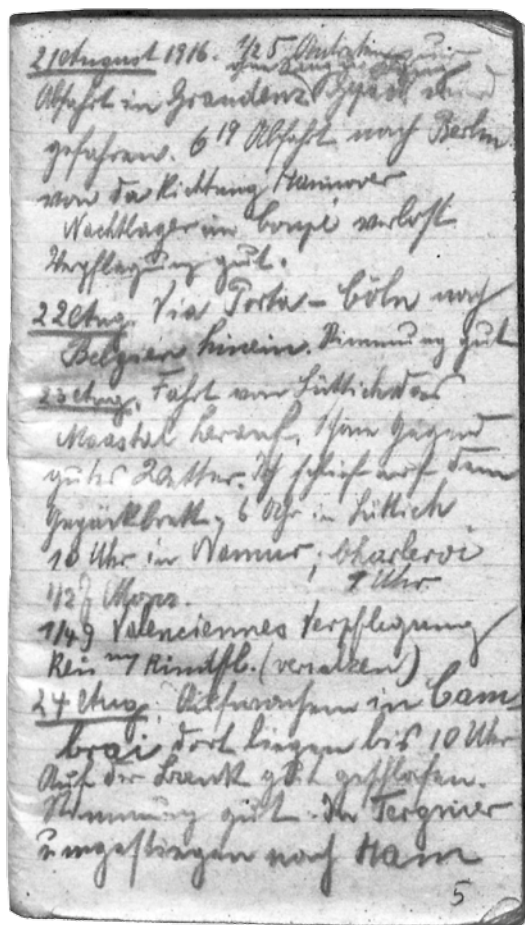 21 August 1916. 1/2 5
Abfahrt in Graudenz
gefahren. 6 19 Abfahrt nach Berlin
von da Richtung Hannover
Nachtlager im Coupé verlost
Verpflegung gut.
22 Aug. Via Porta - Cöln nach
Belgien hinein. Stimmung gut
23 Aug. Fahrt von Lüttich das
Maastal herauf, schöne Gegend
gutes Wetter. Ich schlief auf dem
Gepäckbrett, 6 Uhr in Lüttich
10 Uhr in Namur, Charleroi
1 Uhr
1/2 Mons.
1/4 9 Valenciennes Verpflegung
Reis m/ Rindfl. (versalzen)
24 Aug. Aufwachen in Cam-
brai dort liegen bis 10 Uhr
Auf der Bank gut geschlafen.
Stimmung gut. In Tergnier
umgestiegen nach Ham
5